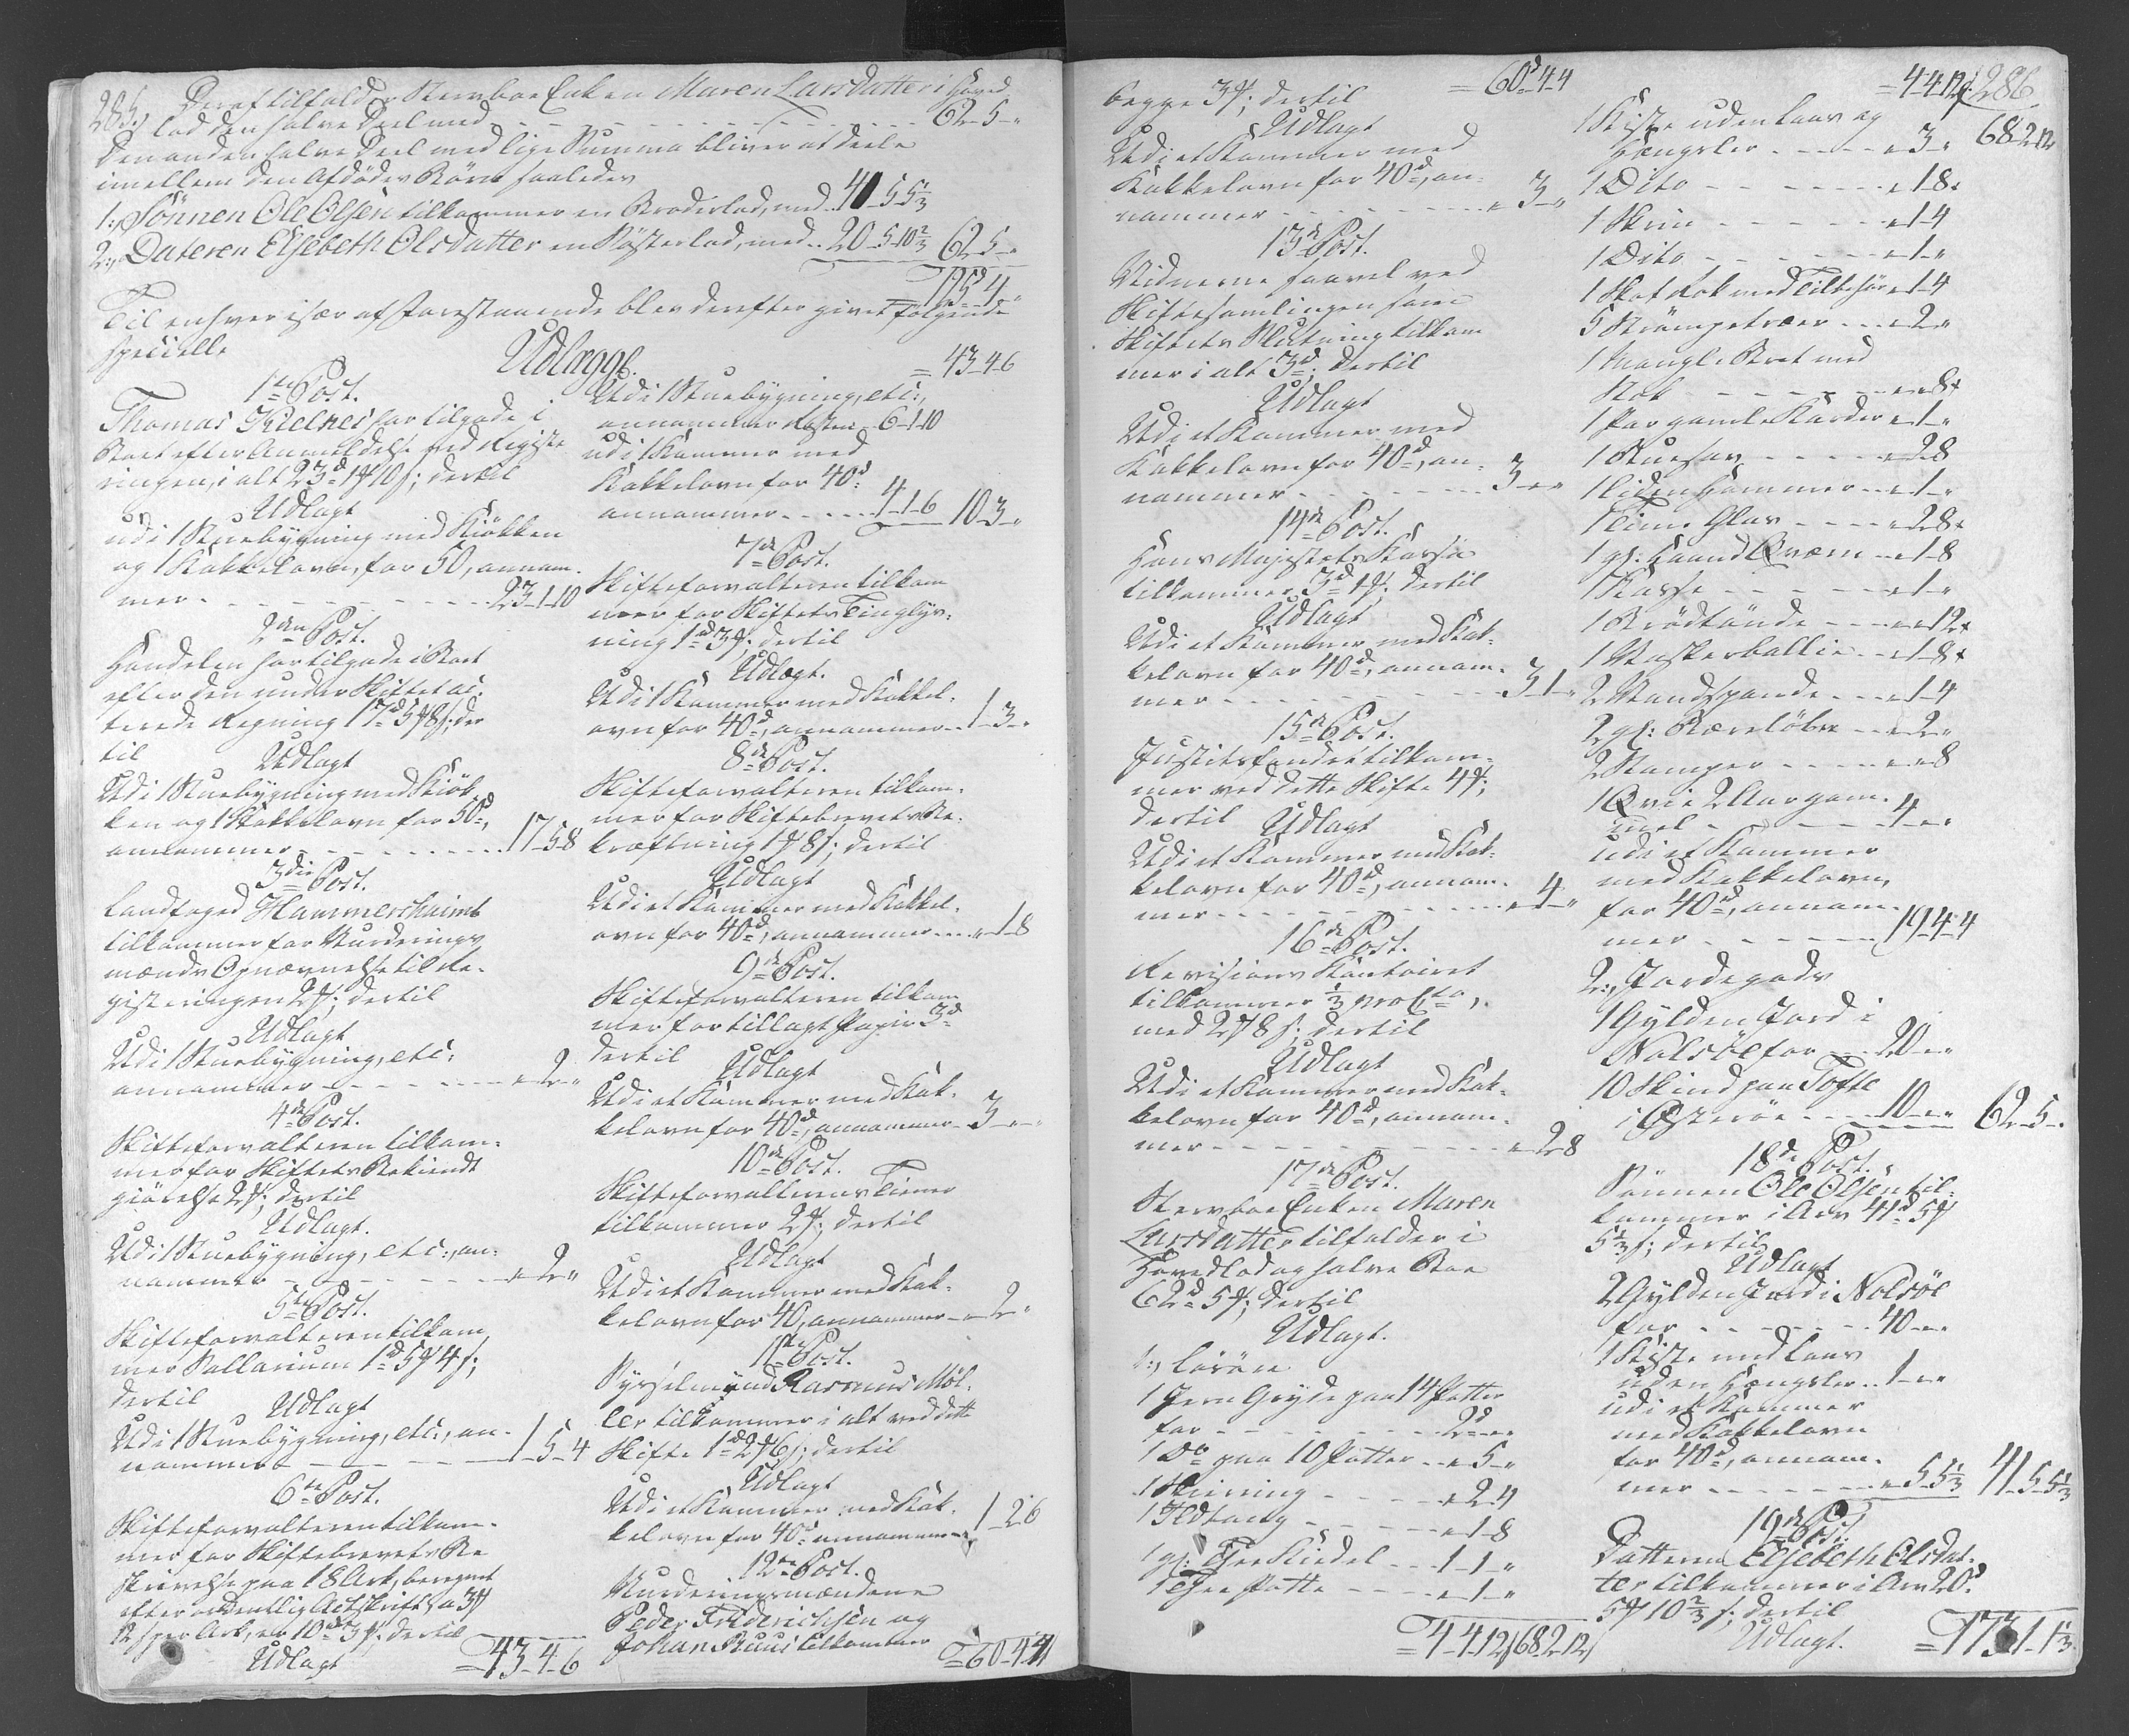 285.
Deraf tilfalder Stervboe Enken Maren Larsdatter i Hoved
lod den halve Deel med - - - 62-5-"
Den anden halve Deel med lige Summa bliver at deele
imellem den Afdødes Börn saaledes
1:, Sönnen Ole Olsen tilkommer en Broderlod, med.. 41-5-5 1/3
2:, Dateren Elsebeth Olsdatter en Søsterlod, med.. 20-5-10 2/3 62-5-"
= 125d 4-"
Til enhver især af Forestaaende blev derefter givet følgende
specielle
Udlægg.
1te Post.
Thomas Kielnes har tilgode i
Boet efter Anmeldelse ved Registe
ringen, i alt 23d 1 10 s; dertil
Udlagt
udi 1 Stuebygning med Kiökken
og 1 Kakkelovn, for 50, annam-
mer - - - 23-1-10
2den Post.
Handelen har tilgode i Boet
efter den under Skiftet ac-
terede Regning 17d 5 8 s; der
til
Udlagt
Udi 1 Stuebygning med Kiök-
ken og 1 Kakkelovn for 50d,
annammer - - - 17-5-8
3die Post.
Landfoged Hammershaimb
tilkommer for Vurderings
mænds Opnævnelse til Re-
gisteringen 2; dertil
Udlagt
Udi 1 Stuebygning, etc:
annammer - - - "-2-"
4de Post.
Skifteforvalteren tilkom-
mer for Skiftets Bekiendt
giörelse 2; dertil
Udlagt.
Udi 1 Stuebygning, etc:, an-
nammer - - - "-2-"
5te Post.
Skifteforvalteren tilkom
mer Sallarium 1d 5 4 s;
dertil
Udlagt
Udi 1 Stuebygning, etc:, an-
nammer - - - 1-5-4
6te Post.
Skifteforvalteren tilkom-
mer for Skiftebrevets Be
skrivelse paa 18 Ark, beregnet
efter ordentlig Actskrift, a 3
12 s per Ark, er 10d 3; dertil
Udlagt
= 43-4-6
= 43-4-6
Udi 1 Stuebygning, etc:,
annammer Resten - 6-1-10
udi 1 Kammer med
Kakkelovn for 40d
annammer - - - 4-1-6 10-3-"
7de Post.
Skifteforvalteren tilkom
mer for Skiftets Tinglys-
ning 1d 3; dertil
Udlagt.
Udi 1 Kammer med Kakkel-
ovn for 40d, annammer.. 1-3-"
8de Post.
Skifteforvalteren tilkom-
mer for Skiftebrevets Be-
kræftning 1 8 s; dertil
Udlagt
Udi et Kammer med Kakkel-
ovn for 40d, annammer... "-1-8
9de Post.
Skifteforvalteren tilkom
mer for tillagt Papir 3d
dertil
Udlagt
Udi et Kammer med Kak-
kelovn for 40d, annammer - 3-"-"
10de Post.
Skifteforvalterens Tiener
tilkommer 2; dertil
Udlagt
Udi et Kammer med Kak-
kelovn for 40, annammer - "-2-"
11te Post.
Sysselmand Rasmus Möl-
ler tilkommer i alt ved dette
Skifte 1d 2 6 s; dertil
Udlagt
Udi et Kammer med Kak-
kelovn for 40d annammer 1-2-6
12te Post.
Vurderingsmændene
Peder Friderichsen og
Johan Ruus tilkommer
= 60-4-4
begge 3; dertil = 60d-4-4
Udlagt
Udi et Kammer med
Kakkelovn for 40d, an-
nammer - - - "-3-"
13de Post.
Vidnerne saavel ved
Skiftesamlingen som
Skiftets Slutning tilkom
mer i alt 3d; dertil
Udlagt
Udi et Kammer med
Kakkelovn for 40d, an-
nammer - - - 3-"-"
14de Post.
Hans Majestets Kassa
tilkommer 3d 1; dertil
Udlagt
Udi et Kammer med Kak-
kelovn for 40d, annam-
mer - - - 3-1-"
15de Post.
Justitsfondet tilkom-
mer ved dette Skifte 4;
dertil Udlagt
Udi et Kammer med Kak-
kelovn for 40d, annam-
mer - - - "-4-"
16de Post.
Revisions Kontoiret
tilkommer 1/3 pro Cto,
med 2 8 s; dertil
Udlagt
Udi et Kammer med Kak-
kelovn for 40d, annam-
mer - - - "-2-8
17de Post.
Stervboe Enken Maren
Larsdatter tilfalder i
Hovedlod og halve Boe
62d 5; dertil
Udlagt.
1:, Lösöre
1 Jern Gryde paa 14 Potter
for - - - 2d-"-"
1 Do paa 10 Potter - "-5-"
1 Skiening - - - "-2-4
1 Ildtang - - - "-1-8
1 gl: Thee Kiedel - - 1-1-"
1 Thee Potte - - - "-1-"
= 4-4-12 68-2-12
= 4-4-12 286
1 Kiste uden Laas og 68-2-12
Hængsler - - - "-3-"
1 Dito - - - "-1-8
1 Skrin - - - "-1-4
1 Dito - - - "-1-"
1 Skot Rok med Tilbehör "-1-4
5 Strömpetræer - - "-2-"
1 Mangle Bret med
Stok - - - "-"-8
1 Par gamle Karder "-1-"
1 Stuesav - - - "-2-8
1 liden Hammer - - "-1-"
1 Time Glas - - - "-2-8
1 gl: Haand Qværn - "-1-8
1 Kasse - - - "-1-"
1 Brödtönde - - - "-"-12
1 Vaskerballie - - "-1-8
2 Vandspande - - - "-1-4
2 gl: Bæreløber - - "-2-"
2 Stamper - - - "-"-8
1 Qvie 2 Aar gam-
mel - - - 4-"-"
udi et Kammer
med Kakkelovn,
for 40d, annam-
mer - - - 19-4-4
2:, Jordegods
1 Gylden Jord i
Nolsöe for - - 20-"-"
10 Skind paa Tofte
i Østeröe - - - 10-"-" 62-5-"
18de Post.
Sönnen Ole Olsen til-
kommer i Arv 41d 5
5 1/3 s; dertil
Udlagt
2 Gylden Jord i Nolsöe
for - - - 40-"-"
1 Kiste med Laas
uden Hængsler.. 1-"-"
udi et Kammer
med Kakkelovn
for 40d, annam-
mer - - - "-5-5 1/3 41-5-5 1/3
19de Post.
Datteren Elsebeth Olsdat-
ter tilkommer i Arv 20d
5 10 2/3 s; dertil
Udlagt.
= 173-1-1 1/3